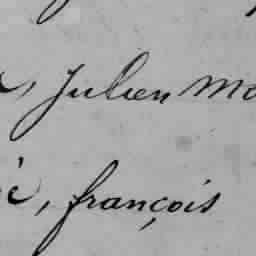 , Julien
, françois